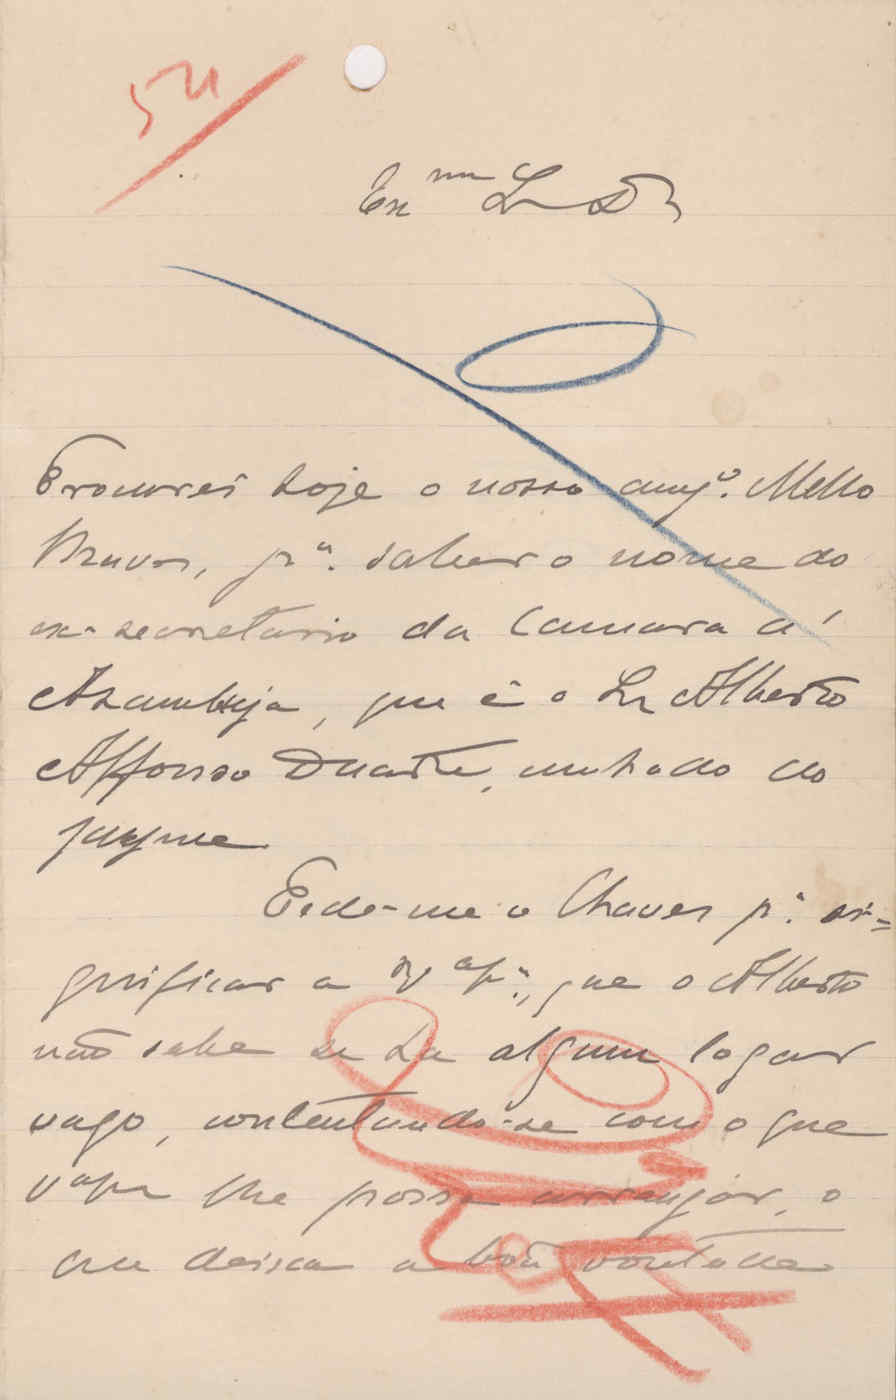 54
Ex mo Sr Dr
Procurei hoje o nosso amgº. Mello
, pª. saber o nome do
ex-secretario da Camara d'
Azambuja, que é o Sr Alberto
Affonso Duarte, cunhado do
Jayme.
Pede-me o Chaves pª. si-
gnificar a V, que o Alberto
não sabe se ha algum logar
vago, contentando-se com o que
lhe possa arranjar, o
que deixa a boa vontade